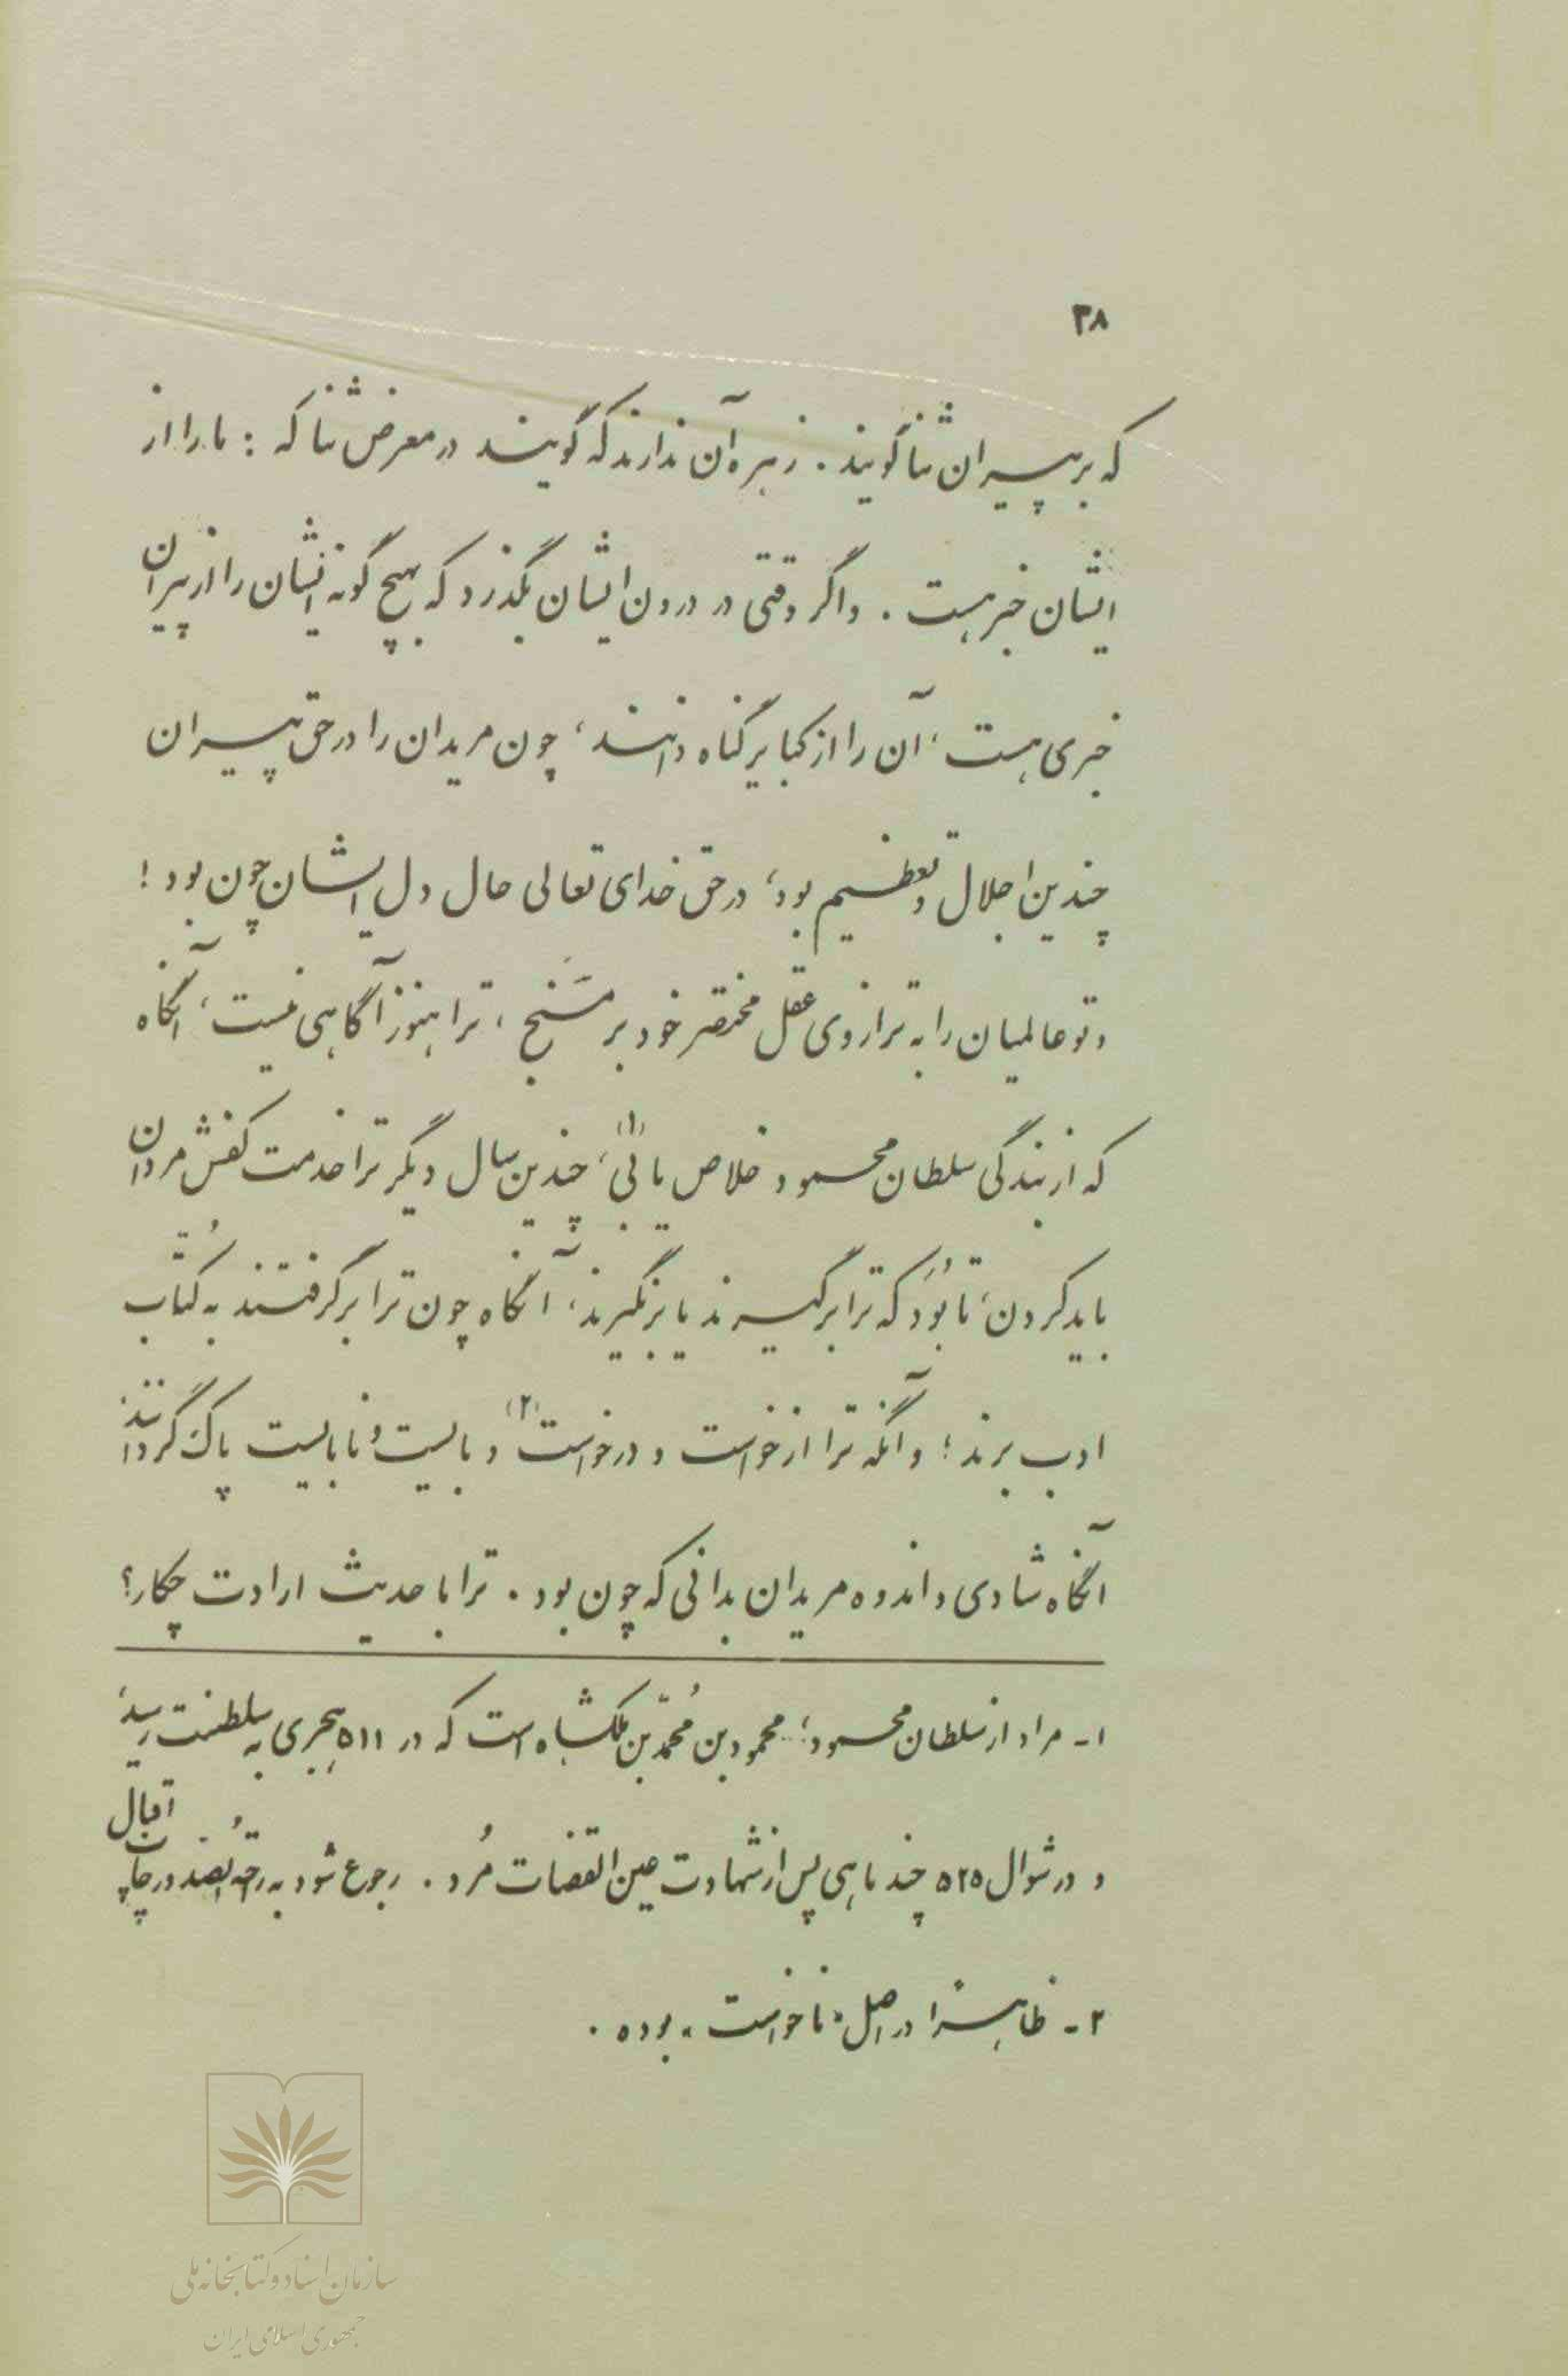 ۳۸
که بر پیران ثنا گویند . زهره آن ندارند که گویند در معرض ثنا که : ما را از
ایشان خبر هست . و اگر وقتی در درون ایشان بگذرد که بهیچ گونه ایشان را از پیران
خبری هست ، آن را از کبایر گناه دانند ، چون مریدان را در حق پیران
چندین اجلال و تعظیم بود ، در حق خدای تعالی حال دل ایشان چون بود !
و تو عالمیان را به ترازوی عقل مختصر خود بر مَسَنج ، ترا هنوز آگاهی نیست ، آنگاه
که از بندگی سلطان محمود خلاص یابی (۱) ، چندین سال دیگر ترا خدمت کفش مردان
باید کردن ، تا بُوَد که ترا برگیرند یا برنگیرند ، آنگاه چون ترا برگرفتند به کُتّاب
ادب برند ؛ و آنگه ترا از خواست و درخواست (۲) و بایست و نابایست پاک گردانند
آنگاه شادی و اندوه مریدان بدانی که چون بود . ترا با حدیث ارادت چکار؟
۱- مراد از سلطان محمود ؛ محمود بن مُحمّد بن ملکشاه است که در ۵۱۱ هجری به سلطنت رسید ،
و در شوال ۵۲۵ چند ماهی پس از شهادت عین القضات مُرد . رجوع شود به در چاپ اقبال
۲- ظاهراً در اصل « ناخواست » بوده .
سازمان اسناد و کتابخانه ملی
جمهوری اسلامی ایران